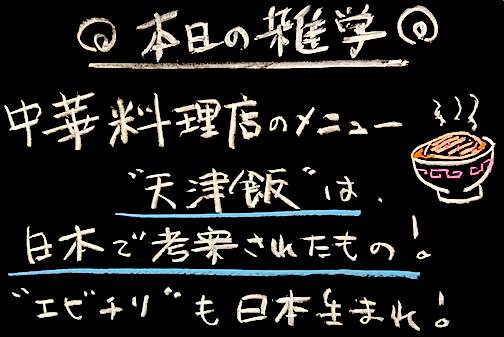 本日の雑学
中華料理店のメニュー
"天津飯"は、
日本で考案されたもの!
"エビチリ"も日本生まれ!